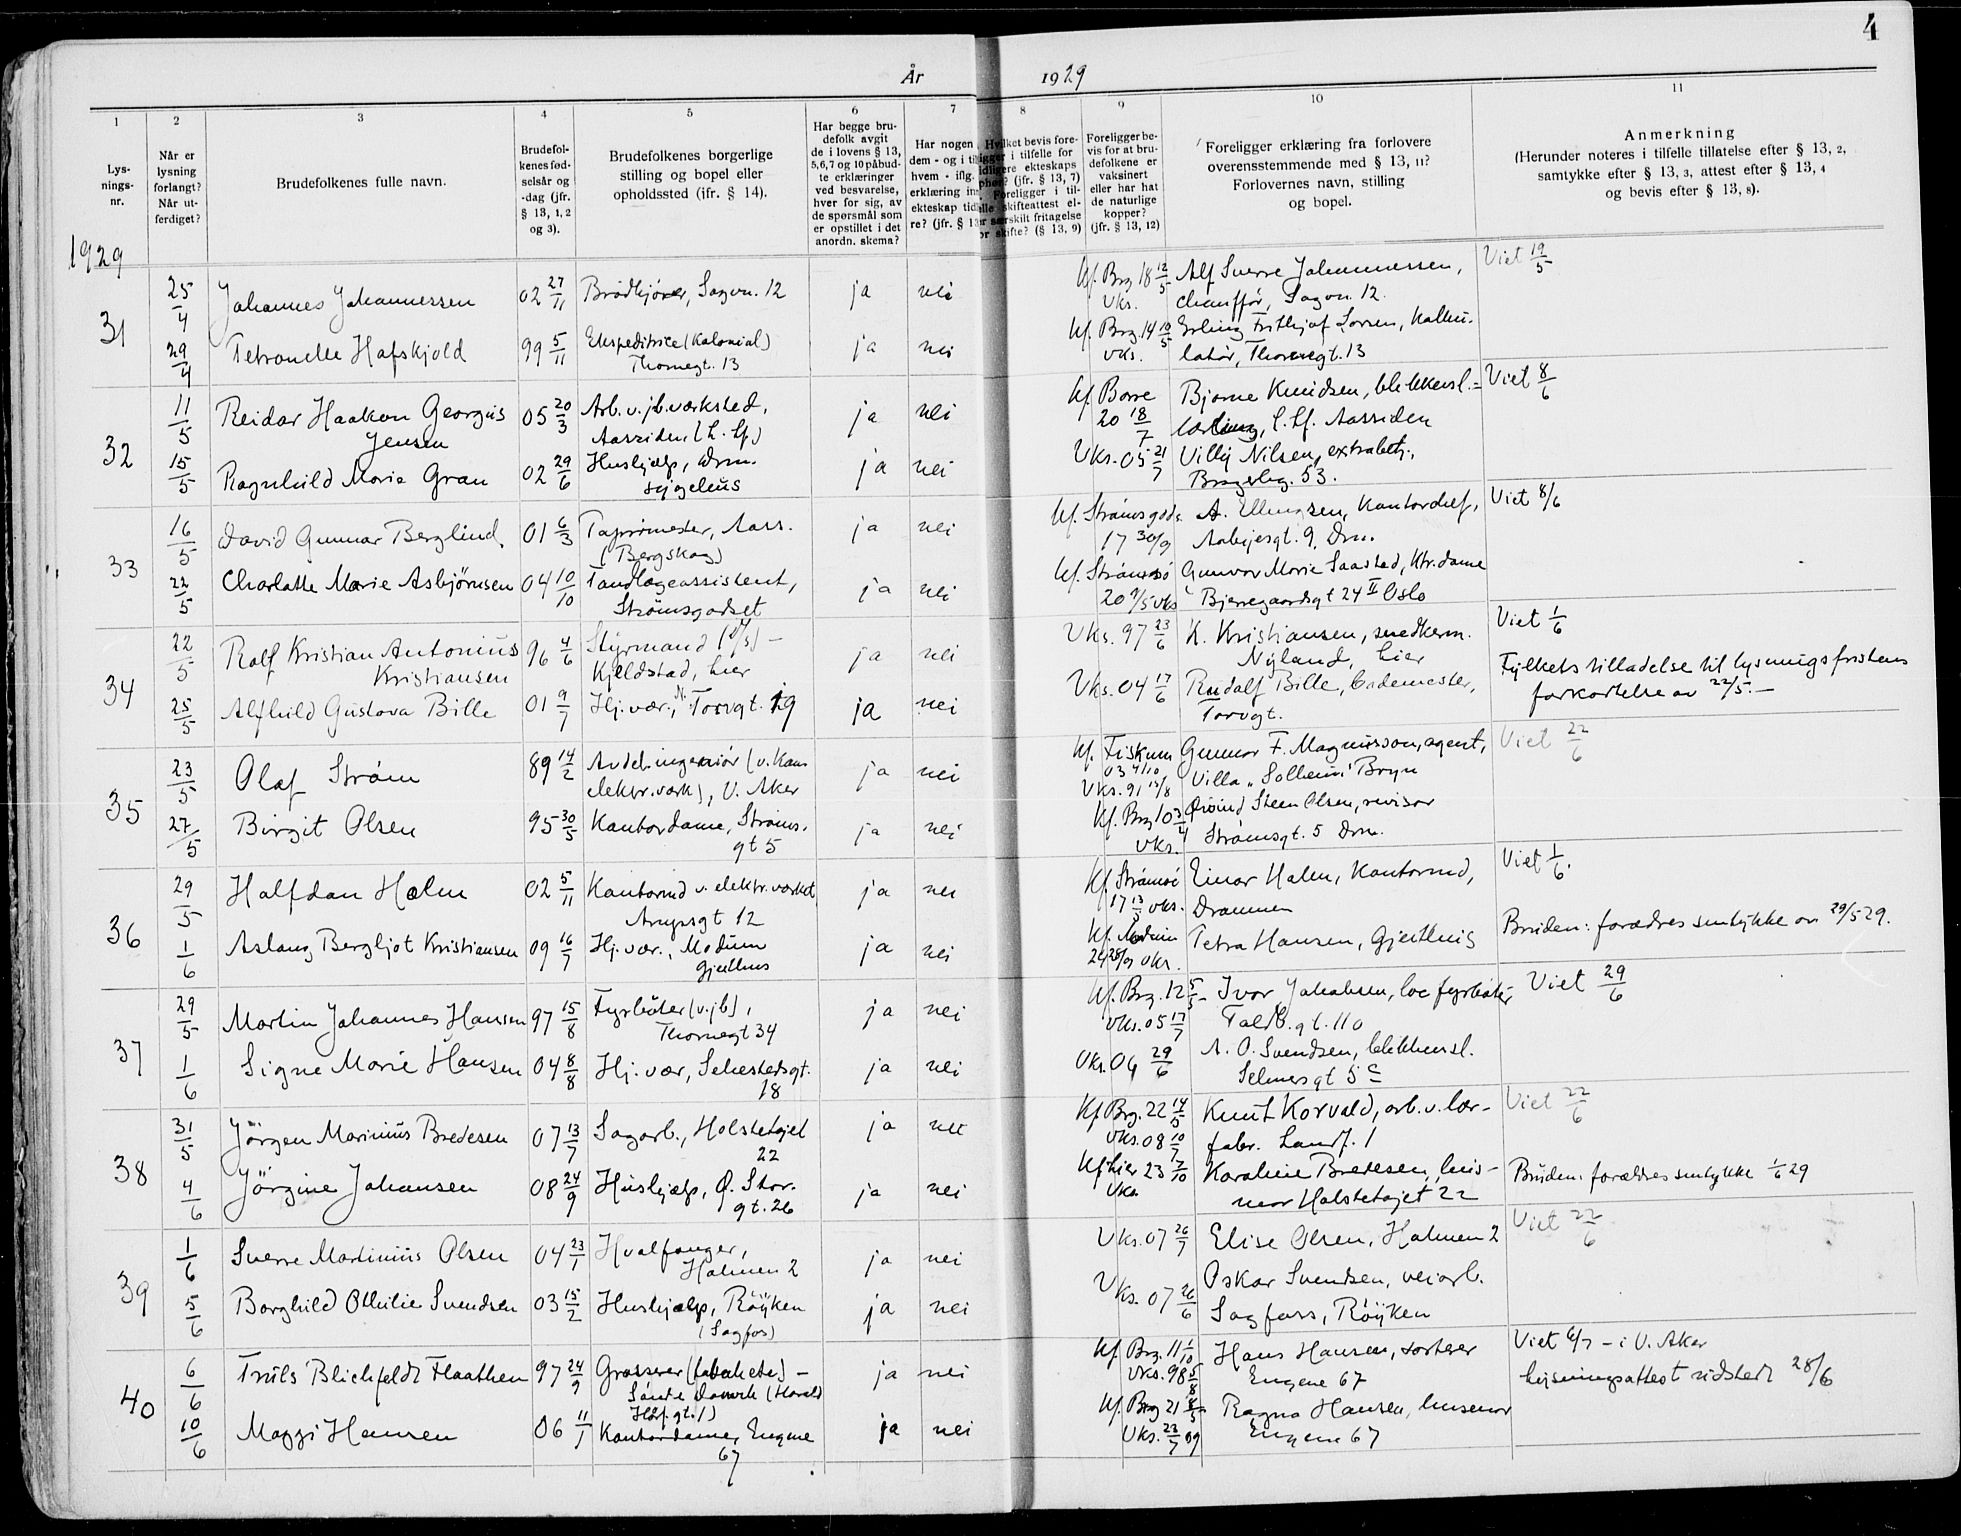 4
År 1929
1
2
3
4
5
6
7
8
9
10
11
Lys-
nings-
nr.
Når er
lysning
forlangt?
Når ut-
ferdiget?
Brudefolkenes fulle navn.
Brudefol-
kenes fød-
selsår og
-dag (jfr.
§ 13, 1, 2
og 3).
Brudefolkenes borgerlige
stilling og bopel eller
opholdssted (ifr. § 14).
Har begge bru-
defolk avgit
de i lovens § 13,
5,6,7 og 10 påbud-
te erklæringer
ved besvarelse,
hver for sig, av
de spørsmål som
er opstillet i det
anordn. skema?
Har nogen
dem - og i til
hvem - iflg.
erklæring in
ekteskap tid
re? (jfr. § 1
Hvilket bevis fore-
ligger i tilfelle for
ldligere ekteskaps
phør? (jfr. § 13, 7)
Foreligger i til-
elle skifteattest el-
er særskilt fritagelse
or skifte? (§ 13, 9)
Foreligger be-
vis for at bru-
defolkene er
vaksinert
eller har hat
de naturlige
kopper?
(jfr. § 13, 12)
Foreligger erklæring fra forlovere
overensstemmende med § 13, 11?
Forlovernes navn, stilling
og bopel.
Anmerkning
(Herunder noteres i tilfelle tillatelse efter § 13, 2,
samtykke efter § 13, 3, attest efter § 13, 4
og bevis efter § 13, 8).
1929
31
25/4 Johannes Johannessen 02 27/11 Brödkjörer, Sagvn. 12 ja nei Kf. Brg 18 12/5 Vks. Alf Sverre Johannessen, Viet 19/5
chaufför, Sagvn. 12.
29/4 Petronelle Hafskjold 99 5/11 Ekspeditrice (Kolonial) ja nei Kf. Brg 14 10/5 vks. Erling Frithjof Lorren, Kalku-
Thornegt. 13 latör, Thornegt. 13
32
11/5 Reidar Haakon Georgius 05 20/3 Arb. v. jb. værksted, ja nei Kf. Borre Bjarne Knudsen, blikkensl.= Viet 8/6
Jensen Aassiden (L. lf.) 20 18/7 lærling, L. lf. Aassiden
15/5 Ragnhild Marie Gran 02 29/6 Hushjælp, Drm. ja nei Vks. 05 21/7 Villy Nilsen, extrabetj.,
sygehus Bragerhg. 53.
33
16/5 David Gunnar Berglind 01 6/3 Papirmester, Aass. ja nei Kf. Strömsgods A. Ellingsen, Kontorchef, Viet 8/6
(Bergskog) 17 30/9 Arbiensgt. 9, Drm.
22/5 Charlotte Marie Asbjörnsen 04 10/10 Tandlægeassistent, ja nei Kf. Strömsö Gunvor Marie Saasted, Ktr. dame
Strömsgodset 20 9/5 vks Bjerregaardsgt 24 II Oslo
34
22/5 Rolf Kristian Antonius 96 4/6 Styrmand (d/s) – ja nei Vks. 97 23/6 K. Kristiansen, snedkerm. Viet 1/6
Kristiansen Kjeldstad, hier Nyland, hier
25/5 Alfhild Gustava Bille 01 9/7 Hj. vær., N. Torvgt. 19 ja nei Vks. 04 17/6 Rudolf Bille, bademester, Fylkets tilladelse til lysningsfristens
Torvgt. forkortelse av 22/5. –
35
23/5 Olaf Ström 89 14/2 Avdel. ingeniör (v. Kom. ja nei Kf. Fiskum Gunnar F. Magnusson, agent, Viet 22/6
elektr. værk), V. Aker 03 4/10 Vks. 91 12/8 Villa „Solheim" Bryn
27/5 Birgit Olsen 95 30/5 Kontordame, Ströms- ja nei Kf. Brg 10 3/4 Öivind Steen Olsen, revisor
gt 5 vks. Strömsgt. 5 Drm.
36
29/5 Halfdan Holm 02 5/11 Kontormd v. elektr. værket ja nei Kf. Strömsö Einar Holm, Kontormd, Viet 1/6.
Arupsgt 12 17 13/5 vks. Drammen
1/6 Aslaug Bergljot Kristiansen 09 16/7 Hj. vær., Modum ja nei Kf. Modum Petra Hansen, Gjeithus Bruden: forældres samtykke av 29/5 29.
Gjeithus 24 28/9 vks.
37
29/5 Martin Johannes Hansen 97 15/8 Fyrböter (v. jb), ja nei Kf. Brg. 12 5/5– Ivar Jakobsen, loc fyrböter, Viet 29/6
Thornegt 34 Vks. 05 17/7 Toldb. gt. 110
1/6 Signe Marie Hansen 04 8/8 Hj. vær, Sehestedsgt. ja nei Vks. 04 29/6 A. O. Svendsen, blikkensl.
18 Selmersgt 5 c
38
31/5 Jörgen Marinius Bredesen 07 13/7 Sagarb., Holstetojet ja nei Kf Brg. 22 14/5 Knut Korvald, arb. v. lær- Viet 22/6
22 Vks. 08 10/7 fabr. Landf. 1
4/6 Jörgine Johansen 08 24/9 Hushjælp, Ø. Stor. ja nei Kf hier 23 7/10 Karoline Bredesen, hus- Bruden: forældres samtykke 1/6 29
gt. 26 Vks. mor Holstetojet 22
39
1/6 Sverre Martinius Olsen 04 23/1 Hvalfanger, ja nei Vks. 07 26/7 Elise Olsen, Holmen 2 Viet 22/6
Holmen 2
5/6 Borghild Othilie Svendsen 03 15/2 Hushjælp, Röyken ja nei Vks. 07 26/6 Oskar Svendsen, veiarb.
(Sagfos) Sagfoss, Röyken
40
6/6 Truls Blichfeldt Flaathen 97 24/9 Grosserer (tobakete) – ja nei Kf. Brg. 11 1/10 Hans Hansen, sorterer Viet 6/7 – i V. Aker
Hbf. gt. 1) Vks. 98 5/8 Engene 67 lysningsattest utstedt 28/6
10/6 Maggi Hansen 06 11/1 Kontordame, Engene ja nei Kf. Brg 21 8/5 Ragna Hansen, husmor
67 Vks. 22/7 09 Engene 67